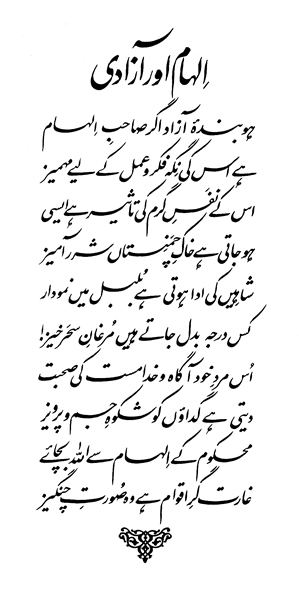 اِلہام اور آزادی
ہو بندۂ آزاد اگر صاحبِ اِلہام
ہے اس کی نِگہ فکر و عمل کے لیے مہمیز
اس کے نفَسِ گرم کی تاثیر ہے ایسی
ہو جاتی ہے خاکِ چَمنِستاں شرر آمیز
شاہیں کی ادا ہوتی ہے بُلبل میں نمودار
کس درجہ بدل جاتے ہیں مُرغانِ سحَرخیز!
اُس مردِ خود آگاہ و خدا مست کی صحبت
دیتی ہے گداؤں کو شکوہِ جم و پرویز
محکوم کے اِلہام سے اللہ بچائے
غارت گرِ اقوام ہے وہ صُورتِ چنگیز